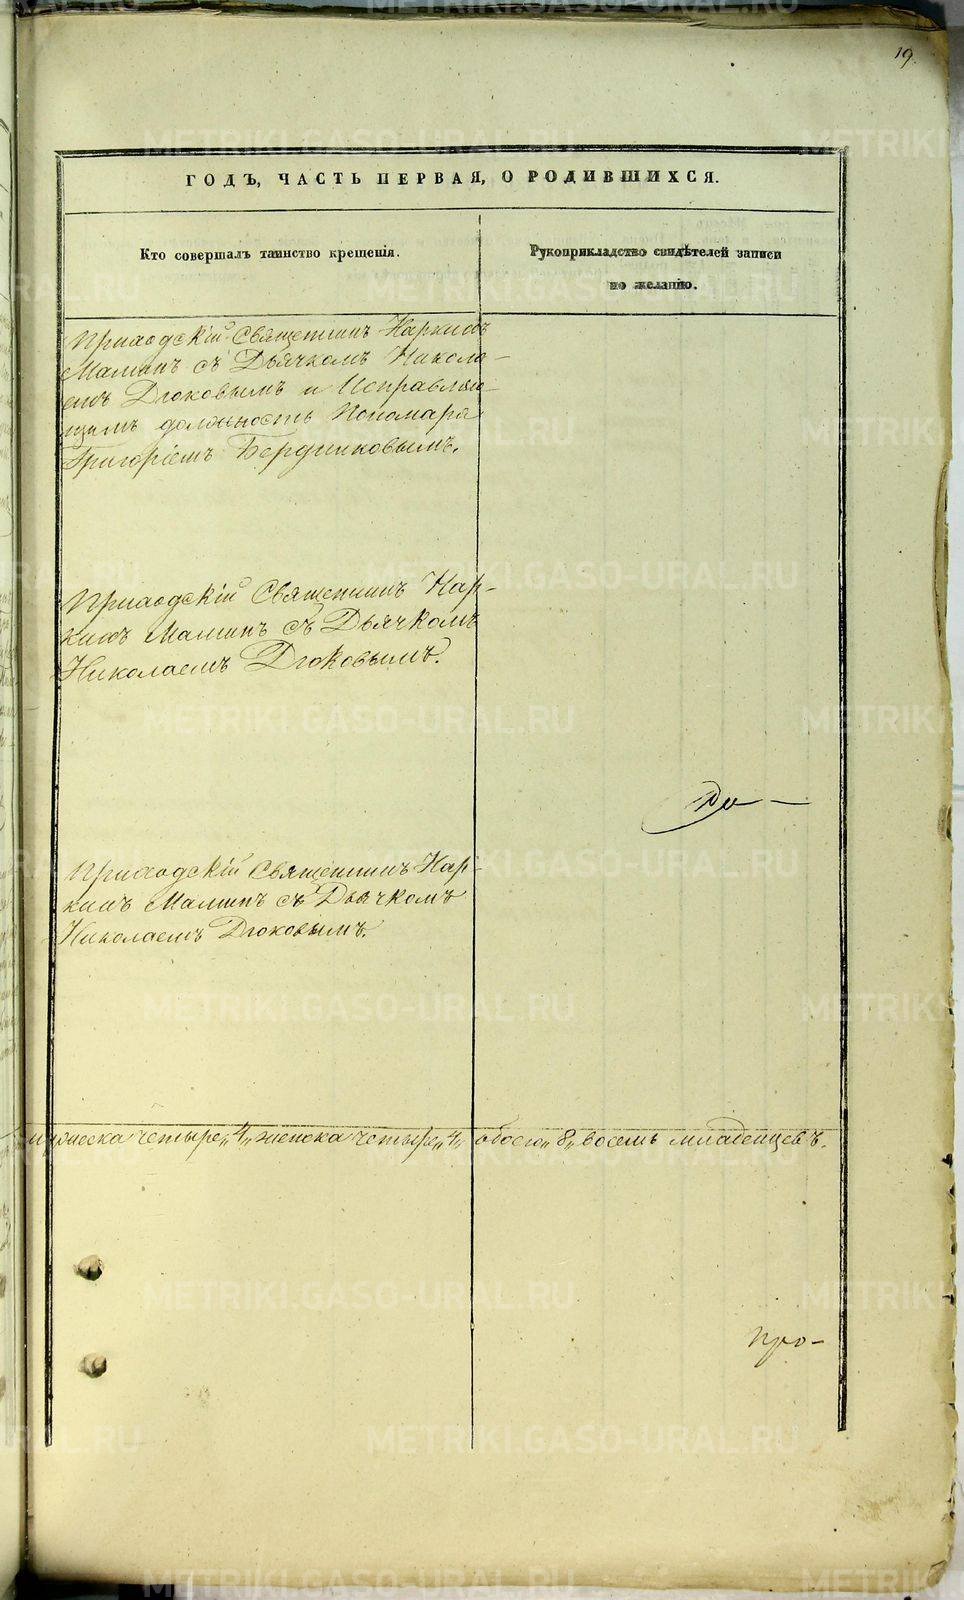 19.
ГОДЪ, ЧАСТЬ ПЕРВАЯ, О РОДИВШИХСЯ.
Кто совершалъ таинство крещенія.
Рукоприкладство свидѣтелей записи
по желанію.
Приходскій Священникъ Наркисъ
Маминъ съ Дьячкомъ Никола-
емъ Дюковымъ и Исправляю-
щимъ должность Пономаря
Григоріемъ Бердниковымъ.
Приходскій Священникъ Нар-
кисъ Маминъ съ Дьячкомъ
Николаемъ Дюковымъ.
Приходскій Священникъ Нар-
кисъ Маминъ съ Дьячкомъ
Николаемъ Дюковымъ.
четыре „4„ женска четыре „4„ обоего „8„ восемь младенцевъ.
про-
METRIKI.GASO-URAL.RU